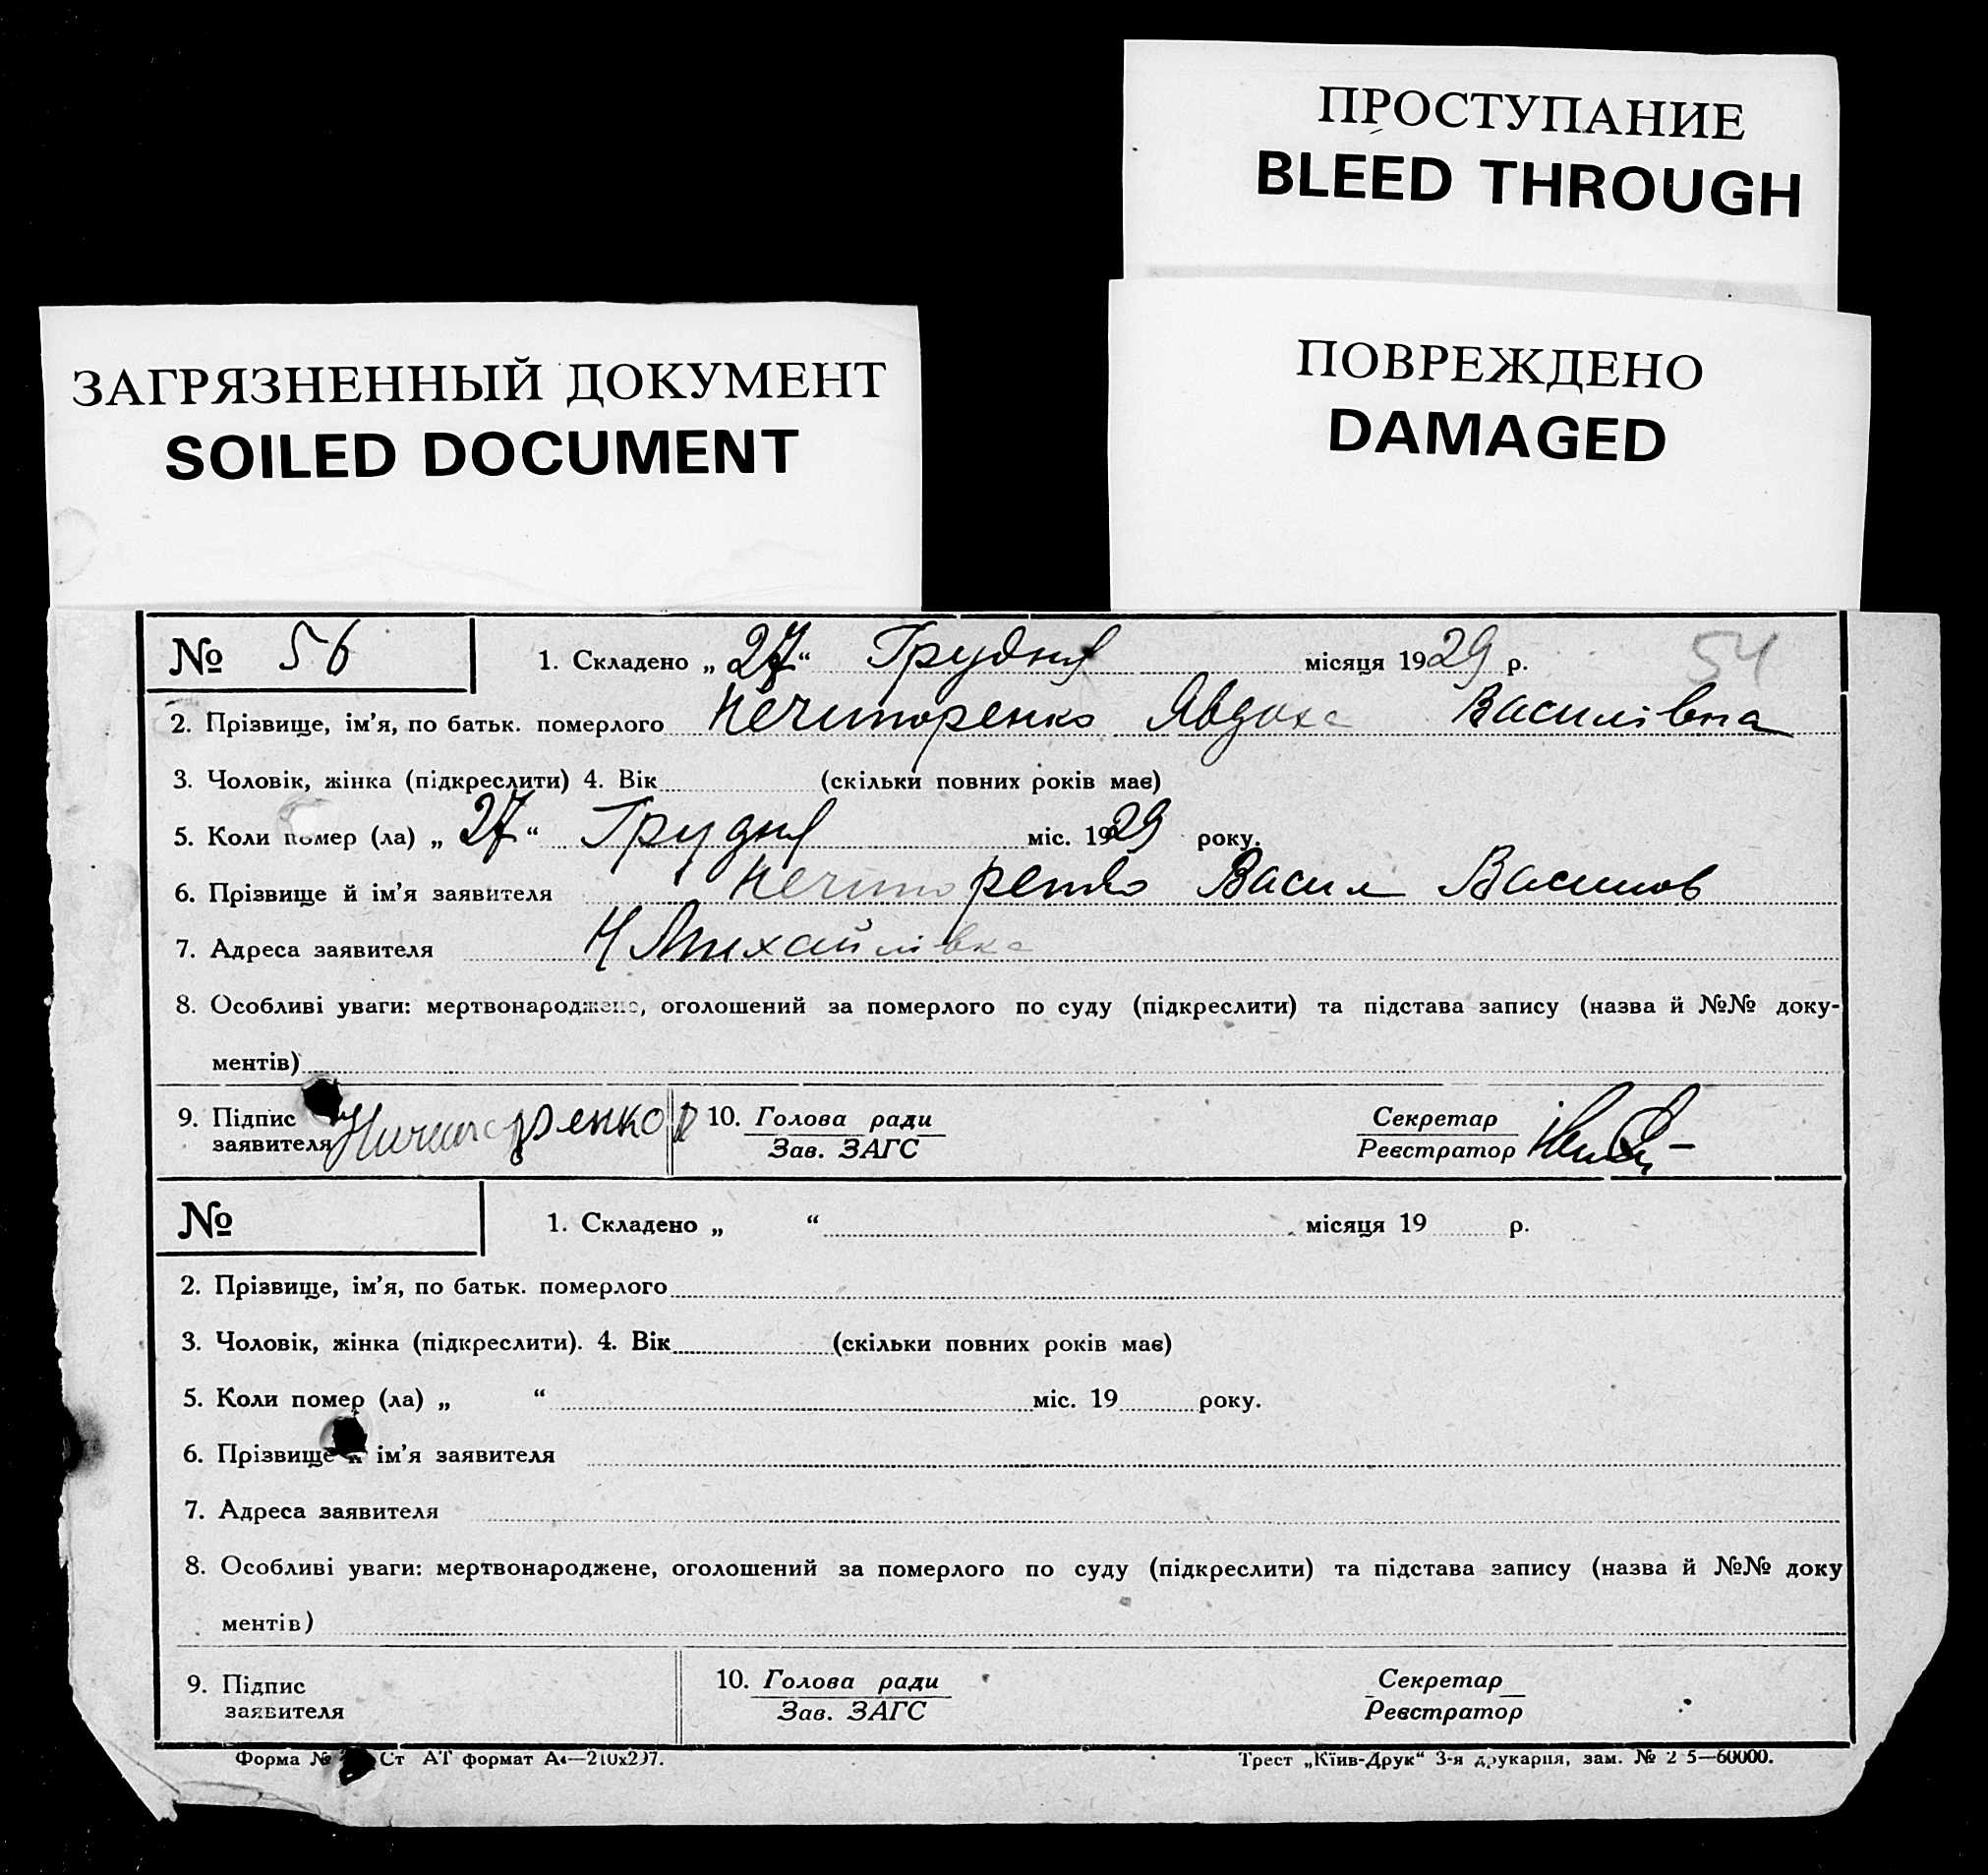 ПРОСТУПАНИЕ
BLEED THROUGH
ЗАГРЯЗНЕННЫЙ ДОКУМЕНТ
SOILED DOCUMENT
ПОВРЕЖДЕНО
DAMAGED
№ 56 1. Складено „ 27 “ Грудня місяця 1929 р. 54
2. Прізвище, ім'я, по батьк. померлого Нечипоренко Явдоха Василівна
3. Чоловік, жінка (підкреслити) 4. Вік (скільки повних років має)
5. Коли помер (ла) „ 27 “ Грудня міс. 1929 року.
6. Прізвище й ім'я заявителя Нечипоренко Васил Васильов
7. Адреса заявителя Н Михайлівка
8. Особливі уваги: мертвонароджене, оголошений за померлого по суду (підкреслити) та підстава запису (назва й №№ доку-
ментів)
9. Підпис заявителя Ничипоренко 10. Голова ради Секретар
Зав. ЗАГС Реєстратор
№ 1. Складено „ “ місяця 19 р.
2. Прізвище, ім'я, по батьк. померлого
3. Чоловік, жінка (підкреслити). 4. Вік (скільки повних років має)
5. Коли помер (ла) „ “ міс. 19 року.
6. Прізвище й ім'я заявителя
7. Адреса заявителя
8. Особливі уваги: мертвонароджене, оголошений за померлого по суду (підкреслити) та підстава запису (назва й №№ доку
ментів)
9. Підпис 10. Голова ради Секретар
заявителя Зав. ЗАГС Реєстратор
Форма № Ст АТ формат А4—210х297. Трест „Київ-Друк“ 3-я друкарня, зам. № 2 5—60000.